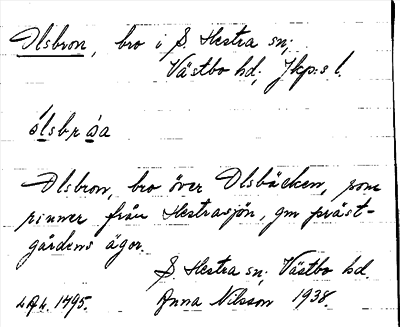 Olsbron, bro i S. Hestra sn;
Västbo hd; Jkp:s l.
ólsbr òa
Olsbron, bro över Olsbäcken, som
rinner från Hestrasjön, gm präst-
gårdens ägor.
S. Hestra sn; Västbo hd.
Anna Nilsson 1938.